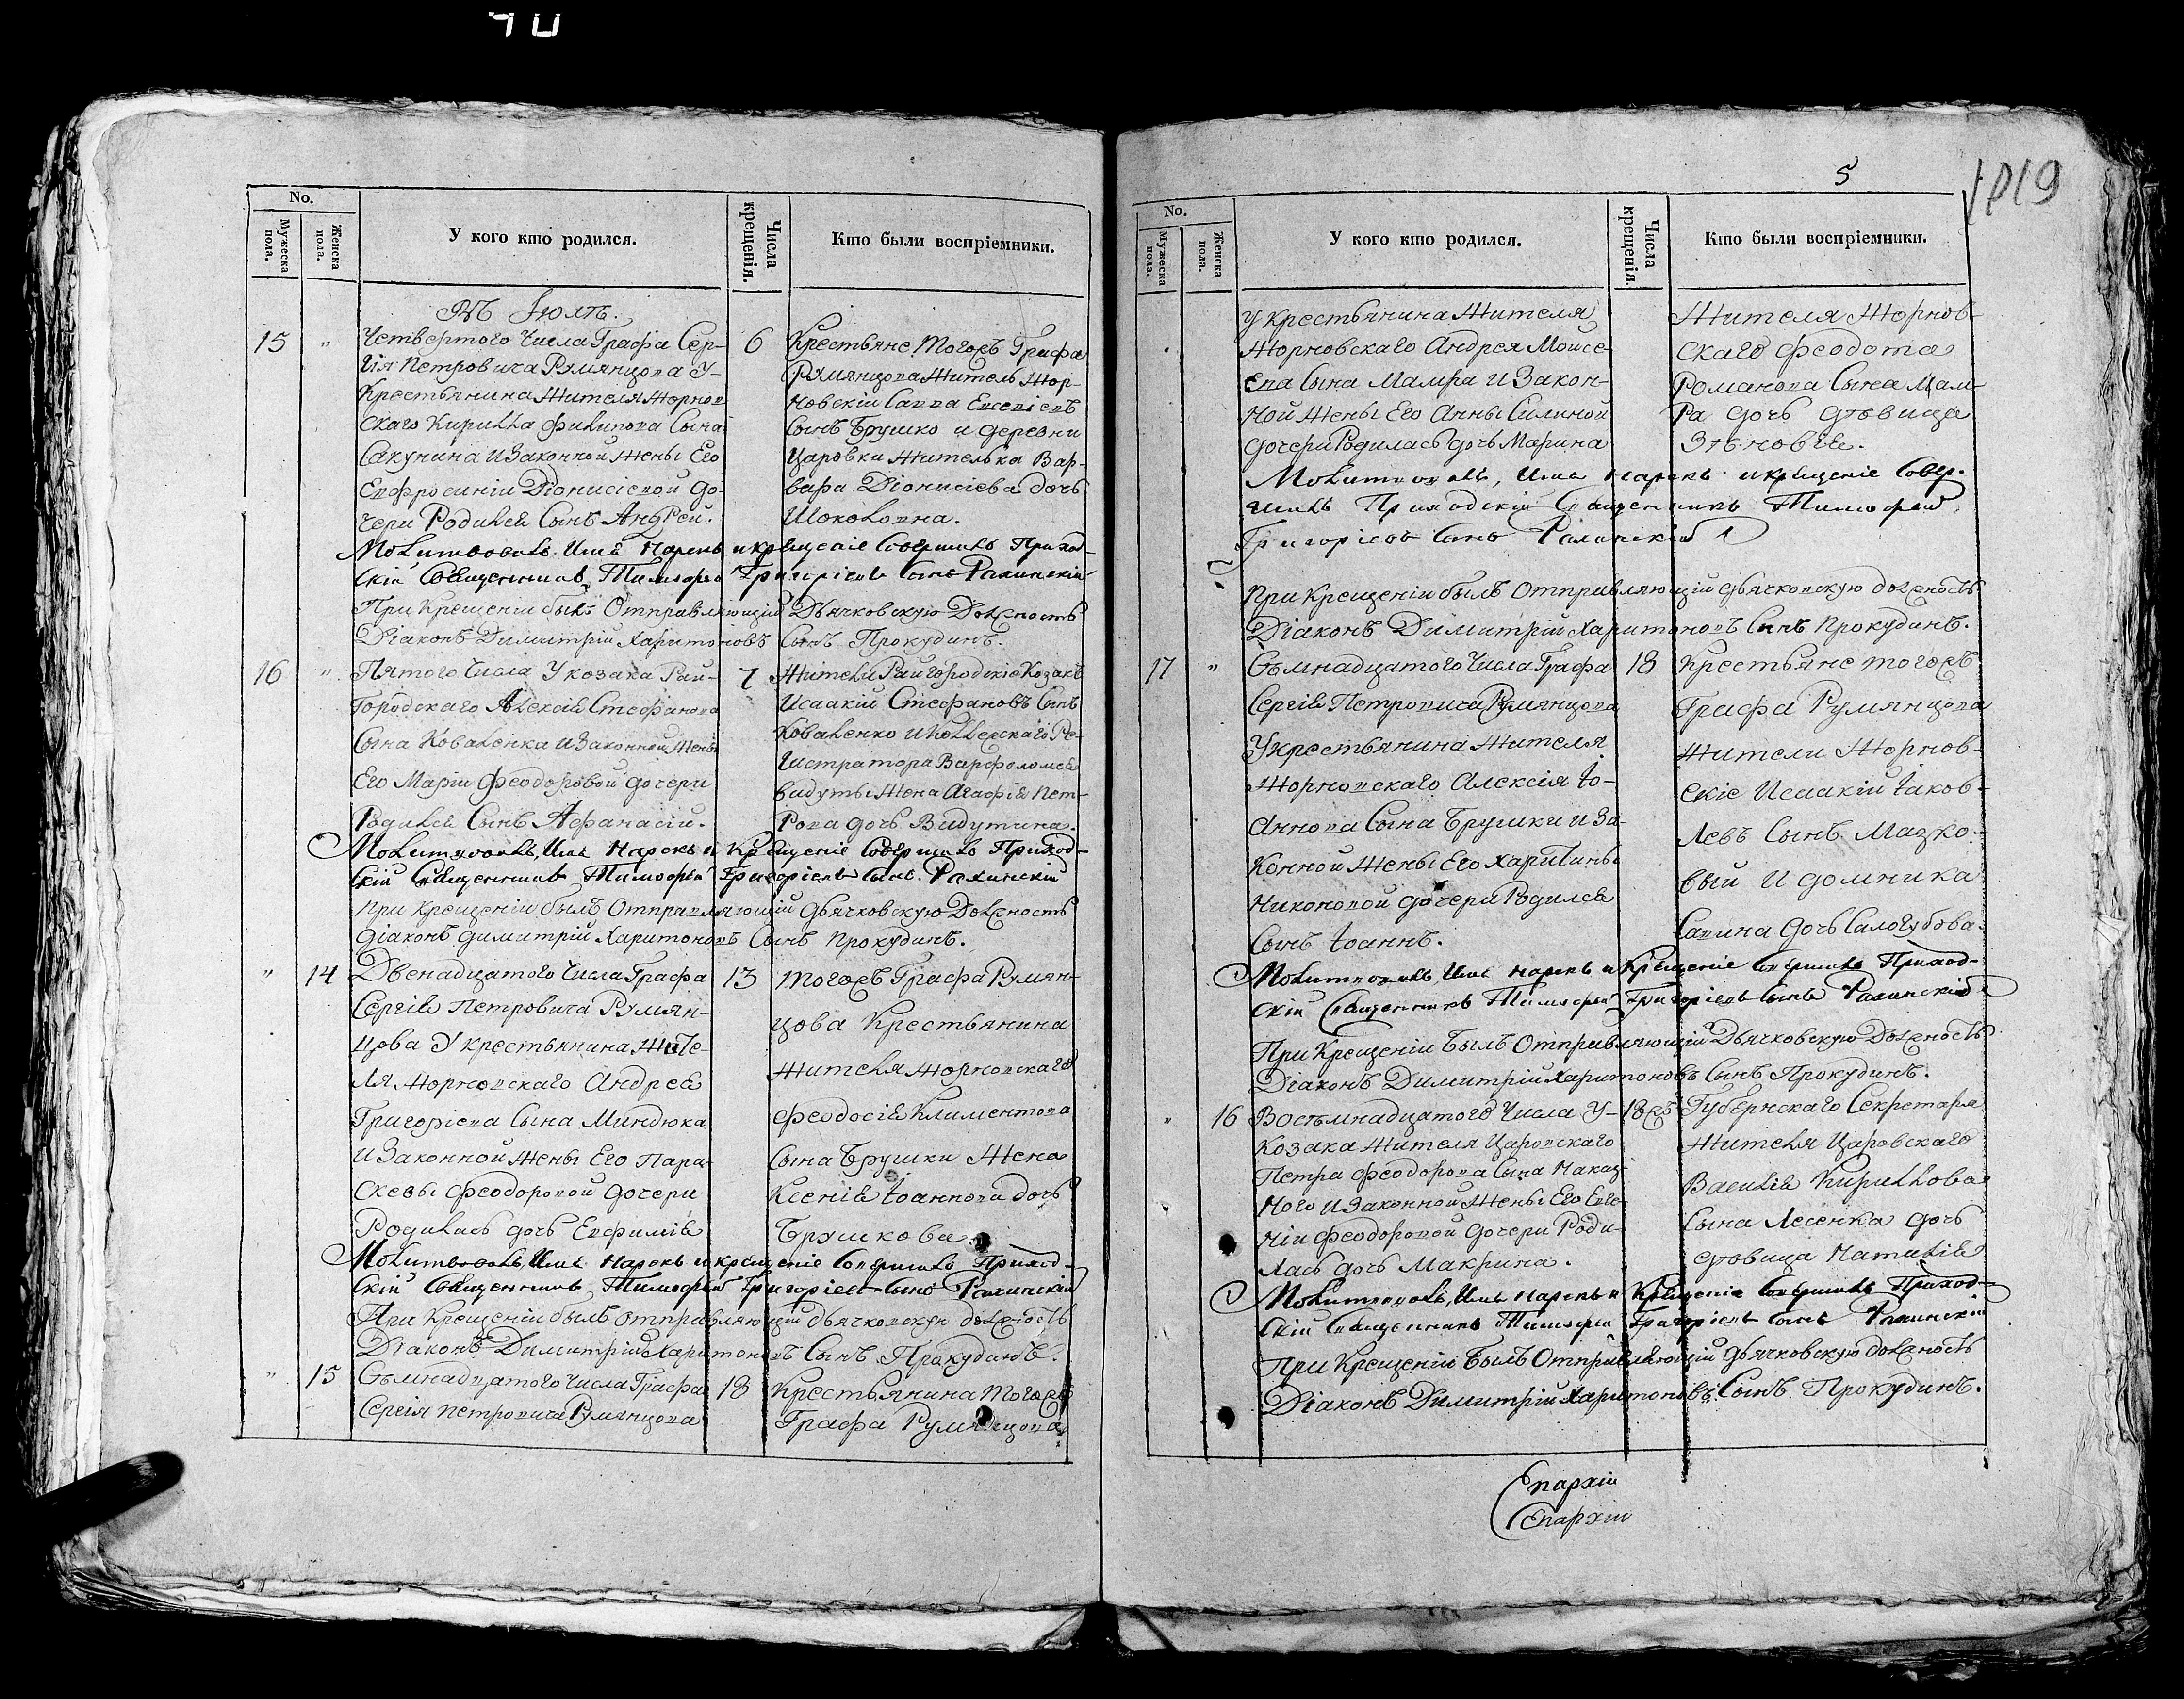 No.
Мужеска пола.
Женска пола.
У кого кто родился.
Числа крещенія.
Кто были воспріемники.
Въ Іюлѣ.
15 " Четвертого Числа Графа Сер-
гія Петровича Румянцова У
Крестьянина Жителя Жорнов
скаго Кирилла Филипова Сына
Сакунина и Законной Жены Его
Евфросиніи Діонисіевой до-
чери Родился Сынъ Андрей.
6 Крестьяне Тогожъ Графа
Румянцова Житель Жор-
новскій Савва Евсевіевъ
Сынъ Брушко и деревни
Царовки Жителька Вар-
вара Діонисіева дочь
Молитвовалъ Имя Нарекъ и крещеніе Совершилъ Приход-
скій Священникъ Тимофей Григоріевъ Сынъ
При Крещеніи былъ Отправляющій Дьячковскую Должность
Діаконъ Димитрій Харитоновъ Сынъ Прокудинъ.
16 " Пятого Числа У козака Рай-
городского Алексія Стефанова
Сына Коваленка и Законной Жены
Его Маріи Феодоровой дочери
Родился Сынъ Афанасій.
7 Жители Райгородскіе Козакъ
Исаакій Стефановъ Сынъ
Коваленко и Коллежскаго Ре-
гистратора Варфоломея
Видуты Жена Агафія Пет-
рова дочь Видутина.
Молитвовалъ, Имя Нарекъ и Крещеніе Совершилъ Приход-
скій Священникъ Тимофей Григоріевъ Сынъ
При Крещеніи былъ Отправляющій дьячковскую Должность
діаконъ димитрій Харитоновъ Сынъ Прокудинъ.
" 14 Двенадцатого Числа Графа
Сергія Петровича Румян-
цова У крестьянина Жите-
ля Жорновскаго Андрея
Григоріева Сына Миндюка
и Законной Жены Его Пара-
скевы Феодоровой дочери
Родилась дочь Евфимія
13 Тогожъ Графа Румян-
цова Крестьянина
Жителя Жорновскаго
Феодосія Климентова
Сына Брушки Жена
Ксенія Іоаннова дочь
Брушкова
Молитвовалъ, Имя Нарекъ и крещеніе Совершилъ Приход-
скій Священникъ Тимофей Григоріевъ Сынъ
При Крещеніи былъ отправляющій дьячковскую должность
Діаконъ Димитрій Харитоновъ Сынъ Прокудинъ.
" 15 Сѣмнадцатого Числа Графа
Сергія Петровича Румянцова
18 Крестьянина Тогожъ
Графа Румянцова
5
1019
No.
Мужеска пола.
Женска пола.
У кого кто родился.
Числа крещенія.
Кто были воспріемники.
У крестьянина Жителя
Жорновскаго Андрея Моисе-
ева Сына Мамра и Закон-
ной Жены Его Анны Силиной
дочери Родилась дочь Марина
Жителя Жорнов-
скаго Феодота
Романова Сына Мам-
ра дочь дѣвица
Зѣновія.
Молитвовалъ, Имя нарекъ и крещеніе Совер-
шилъ Приходскій Священникъ Тимофей
Григоріевъ Сынъ
При Крещеніи былъ Отправляющій дьячковскую должность
Діаконъ Димитрій Харитоновъ Сынъ Прокудинъ.
17 " Сѣмнадцатого Числа Графа
Сергія Петровича Румянцова
У крестьянина Жителя
Жорновскаго Алексія Іо-
аннова Сына Брушки и За-
конной Жены Его Харитины
Никоновой дочери Родился
Сынъ Іоаннъ.
18 Крестьяне тогожъ
Графа Румянцова
Жители Жорнов-
скіе Исаакій Іаков-
левъ Сынъ Мазко-
вый и домника
Савина дочь Салогубова.
Молитвовалъ, Имя нарекъ и Крещеніе Совершилъ Приход-
скій Священникъ Тимофей Григоріевъ Сынъ
При Крещеніи Былъ Отправляющій Дьячковскую Должность
Діаконъ Димитрій Харитоновъ Сынъ Прокудинъ.
" 16 Восѣмнадцатого Числа У-
козака Жителя Царовскаго
Петра Феодорова Сына Наказ-
ного и Законной Жены Его Евге-
ніи Феодоровой дочери Роди-
лась дочь Макрина.
18жъ Губернскаго Секретаря
Жителя Царовскаго
Василія Кириллова
Сына Лесенка дочь
дѣвица Наталія
Молитвовалъ, Имя нарекъ и Крещеніе Совершилъ Приход-
скій Священникъ Тимофей Григоріевъ Сынъ
При Крещеніи Былъ Отправляющій дьячковскую должность
Діаконъ Димитрій Харитоновъ Сынъ Прокудинъ.
Епархіи
Епархіи